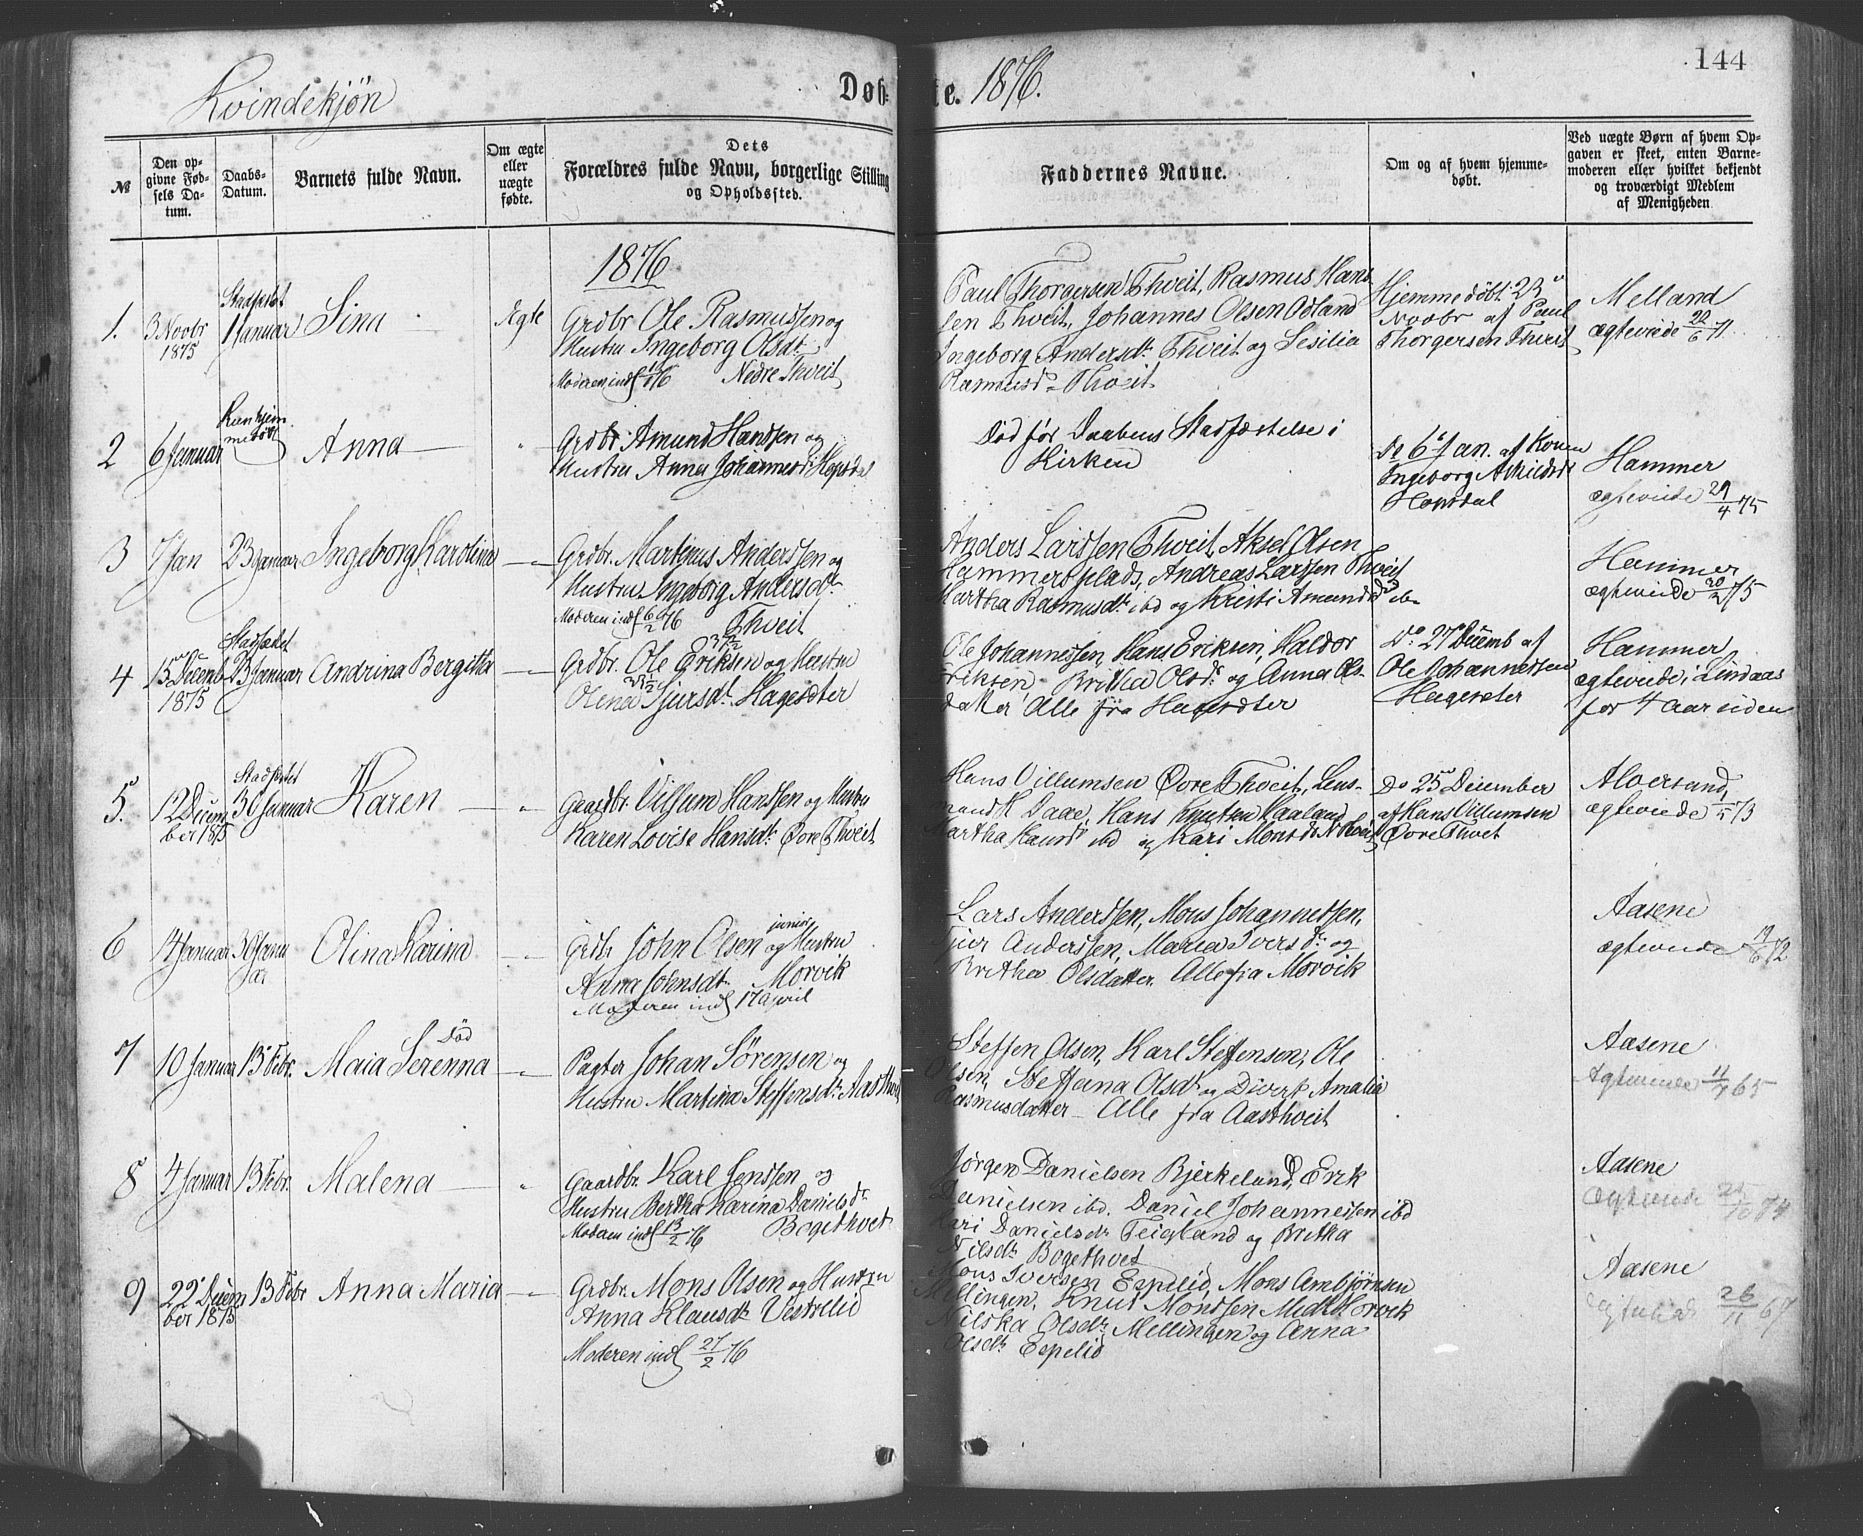 144
Kvindekjøn
Døb- te. 1876.
№
Den op-
givne Fød-
sels Da-
tum.
Daabs-
Datum.
Barnets fulde Navn.
Om ægte
eller
uægte
fødte.
Dets
Forældres fulde Navn, borgerlige Stilling
og Opholdssted.
Faddernes Navne.
Om og af hvem hjemme-
døbt.
Ved uægte Børn af hvem Op-
gaven er skeet, enten Barne-
moderen eller hvilket bekjendt
og troværdigt Medlem
af Menigheden
1876
1. 3 Novbr
1875
Stadfæstet
1 Januar
Sina
Ægte
Grdbr Ole Rasmussen og
Hustru Ingeborg Olsdt
Moderen indl Nedre Thveit
Paul Thorgersen Thveit, Rasmus Han-
sen Thveit, Johannes Olsen Odland
Ingeborg Andersdt Thveit og Sesilia
Rasmusd Thveit
Hjemmedøbt 23
Novbr af Paul
Thorgersen Thveit
Melland
ægteviede 22/6 71
2 6 Januar
Kun hjem-
medøbt
Anna
Grdbr Amund Hansen og
Hustru Anna Johannesd Hopsdal
Død før Daabens Stadfæstelse i
Kirken
Do 6 Jan. af Konen
Ingeborg
Hopsdal
Hammer
ægteviede 29/4 75
3 7 Jan 23 Januar Ingeborg Karolina
Grdbr. Martinus Anderssen og
Hustru Ingeborg Andersdt
Moderen indl 6/2 76 Thveit
Anders Larssen Thveit, Aksel Olsen
Hammersplads, Andreas Larssen Thveit
Martha Rasmusdt ibd og Kristi Amundsd
Hammer
ægteviede 75
4 15 Decemb
1875
Stadfæstet
23 Januar
Andrina Bergitta
Grdbr. Ole Eriksen og Hustru
Olena Sjursdt. Hagesæter
Ole Johannessen, Hans Eriksen, Haldor
Eriksen Britha Olsdr og Anna Ols-
datter Alle fra Hagesæter
Do 27 Decemb af
Ole Johannessen
Hagesæter
Hammer
ægteviede i Lindaas
for 4 Aar siden
5. 12 Decem-
ber 1875
Stadfæstet
30 Januar
Karen
Gaardbr. Villum Hanssen og Hustru
Karen Lovise Hansdt. Øvre Thveit
Hans Villumsen Øvre Thveit, Lens-
mand K Daae, Hans Knutsen Kaaland
Martha Hansd ibd og Kari Monsd N Thveit
Do 25 December
af Hans Villumsen
Øvre Thveit
Alversund
ægteviede 73
6 14 Januar 30 Janu-
ar
Olina Karina
Grdbr John Olsen junior og Hustru
Anna Johnsdt. Morvik
Moderen indl 17 April
Lars Anderssen, Mons Johannessen,
Sjur Anderssen, Maria Iversdr og
Britha Olsdatter. Alle fra Morvik
Aasene
ægteviede 19/6 72
7 10 Januar 13 Febr. Maia Serenna
Død
Pagter Johan Sørensen og
Hustru Martina Steffensdt. Aasthveit
Steffen Olsen, Karl Steffensen, Ole
Olsen, Steffana Olsdt og Divert Amalia
Rasmusdatter - Alle fra Aasthveit
Aasene
Ægteviede 65
8 4 Januar 13 Febr. Malena
Gaardbr. Karl Jenssen og
Hustru Bertha Karina Danielsdr
Moderen indl 13/2 76 Bogethvet
Jørgen Danielsen Bjerkelund, Erik
Danielsen ibd. Daniel Johannessen ibd
Kari Danielsdr Teigland og Britha
Nilsdt Bogethvet
Aasene
Ægteviede 74
9 22 Decem-
ber 1875
13 Febr Anna Maria
Grdbr. Mons Olsen og Hustru
Anna Klausdt Vestrelid
Moderen indl 27/2 76
Mons Iversen Espelid, Mons Ambjørnsen
Mellingen, Knut Monssen Midt Morvik
Nilska Olsdr Mellingen og Anna
Olsdt Espelid
Aasene
26/11 67